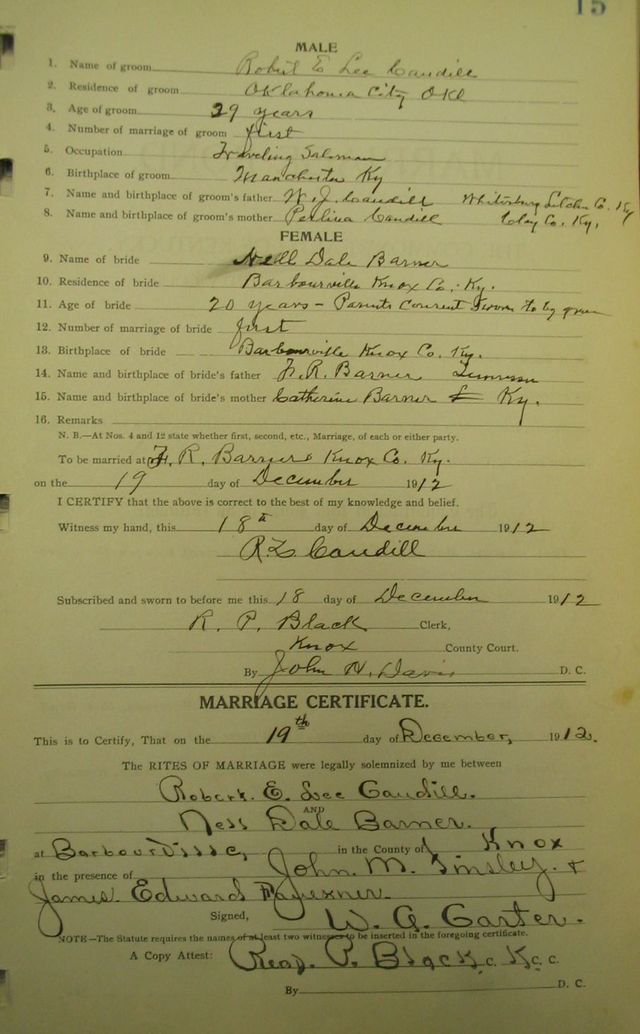 15
MALE
1. Name of groom Robert E Lee Caudill
2. Residence of groom Oklahoma City Okl
3. Age of groom 29 years
4. Number of marriage of groom first
5. Occupation Traveling Salesman
6. Birthplace of groom Manchester Ky
7. Name and birthplace of groom's father W. J. Caudill Whitesburg Letcher Co. Ky
8. Name and birthplace of groom's mother Perlina Caudill Clay Co. Ky.
FEMALE
9. Name of bride Nell Dale Barner
10. Residence of bride Barbourville Knox Co. Ky.
11. Age of bride 20 years – Parents consent sworn to by groom
12. Number of marriage of bride first
13. Birthplace of bride Barbourville Knox Co. Ky.
14. Name and birthplace of bride's father F. R. Barner Tennessee
15. Name and birthplace of bride's mother Catherine Barner Ky.
16. Remarks
N. B.—At Nos. 4 and 12 state whether first, second, etc., Marriage, of each or either party.
To be married at F. R. Barners Knox Co. Ky.
on the 19 day of December 1912
I CERTIFY that the above is correct to the best of my knowledge and belief.
Witness my hand, this 18th day of December 1912
R. L. Caudill
Subscribed and sworn to before me this 18 day of December 1912
R. P. Black Clerk,
Knox County Court.
By John H. Davis D. C.
MARRIAGE CERTIFICATE.
This is to Certify, That on the 19th day of December, 1912.
The RITES OF MARRIAGE were legally solemnized by me between
Robert. E. Lee Caudill.
AND
Nell Dale Barner.
at Barbourville, in the County of Knox
in the presence of John. M. Tinsley. &
James. Edward
Signed, W. A. Carter.
NOTE—The Statute requires the names of at least two witnesses to be inserted in the foregoing certificate.
A Copy Attest: Read. P. Black C. K. C. C.
By D. C.